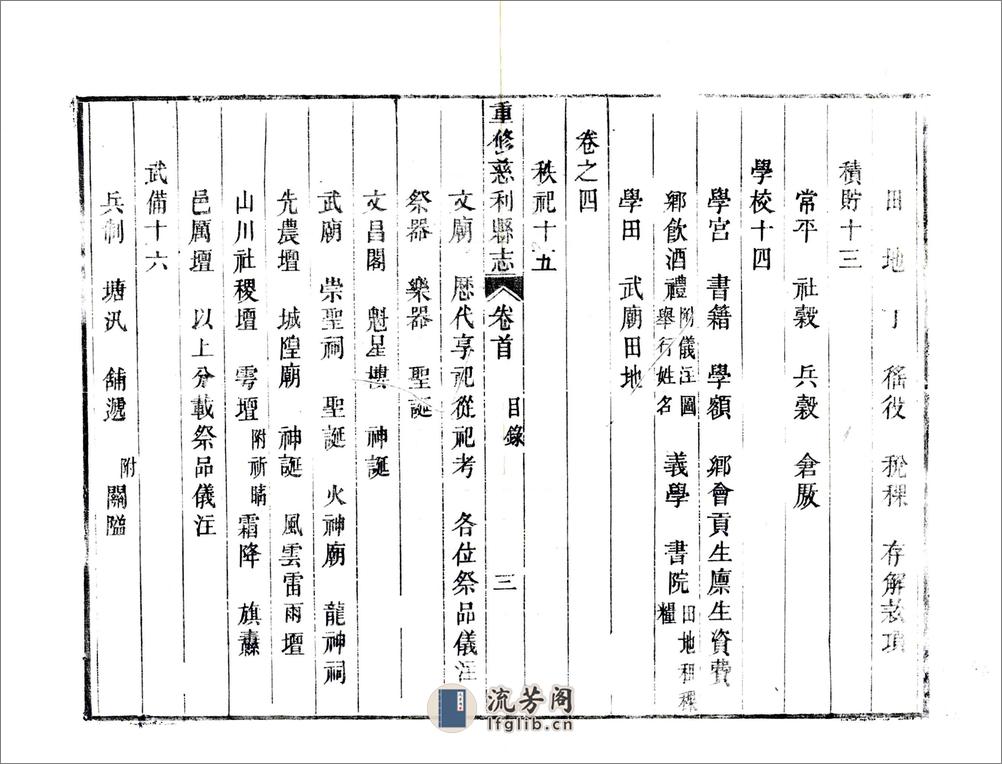 田　地　丁　徭役　稅稞　存解𣢾項
積貯十三
常平　社榖　兵榖　倉厫
學校十四
學宮　書籍　學額　鄉會貢生廪生資費
鄉飲酒禮 附儀注圖 舉行姓名　義學　書院 田地租稞 糧
學田　武廟田地
卷之四
秩祀十五
重修慈利縣志　卷首　目錄　三
文廟　歷代享祀從祀考　各位祭品儀注
祭器　樂器　聖誕
文昌閣　魁星樓　神誕
武廟　崇聖祠　聖誕　火神廟　龍神祠
先農壇　城隍廟　神誕　風雲雷雨壇
山川社稷壇　雩壇　附祈晴　霜降　旗纛
邑厲壇　以上分載祭品儀注
武備十六
兵制　塘汛　舖遞　附關隘
流芳阁
lfglib.cn